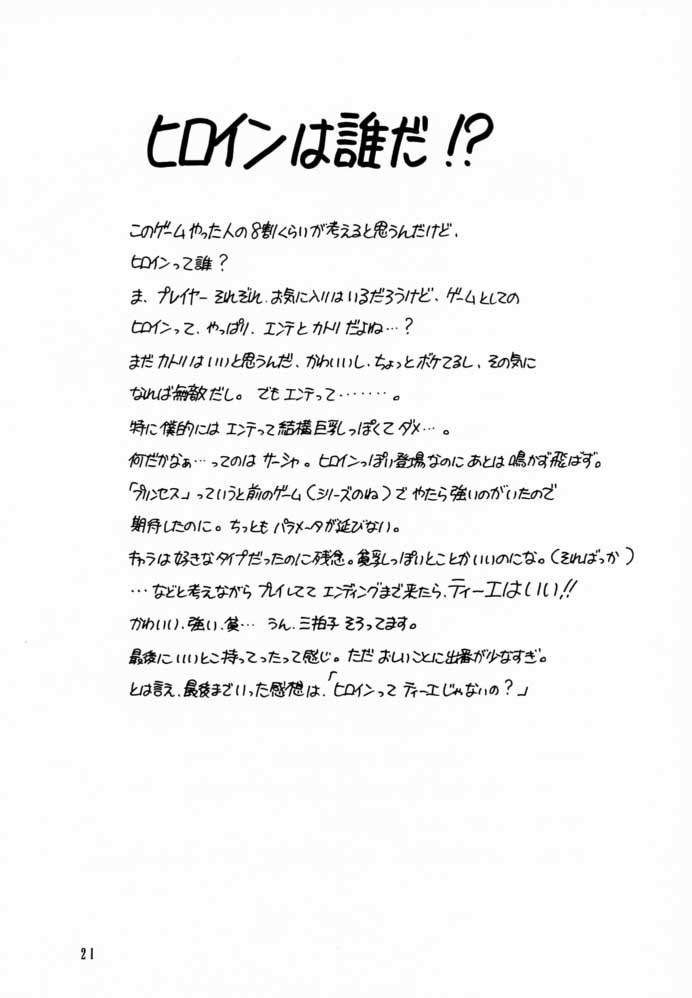 ヒロインは誰だ!?
このゲームやった人の8割くらいが考えると思うんだけど、
ヒロインって誰?
ま、プレイヤーそれぞれ、お気に入りはいるだろうけど、ゲームとしての
ヒロインって、やっぱり、エンテとカトリだよね…?
まだカトリはいいと思うんだ、かわいいし、ちょっとボケてるし、その気に
なれば無敵だし。でもエンテって・・・・・・・。
特に僕的にはエンテって結構巨乳っぽくてダメ…。
何だかなぁ…ってのはサーシャ。ヒロインっぽい登場なのにあとは鳴かず飛ばず。
「プリンセス」っていうと前のゲーム(シリーズのね)でやたら強いのがいたので
期待したのに。ちっともパラメータが延びない。
キャラは好きなタイプだったのに残念。貧乳っぽいとことかいいのにな。(そればっか)
…などと考えながらプレイしててエンディングまで来たら、ティーエはいい!!
かわいい、強い、貧… うん、三拍子そろってます。
最後にいいとこ持ってったって感じ。ただおしいことに出番が少なすぎ。
とは言え、最後までいった感想は、「ヒロインってティーエじゃないの?」
21